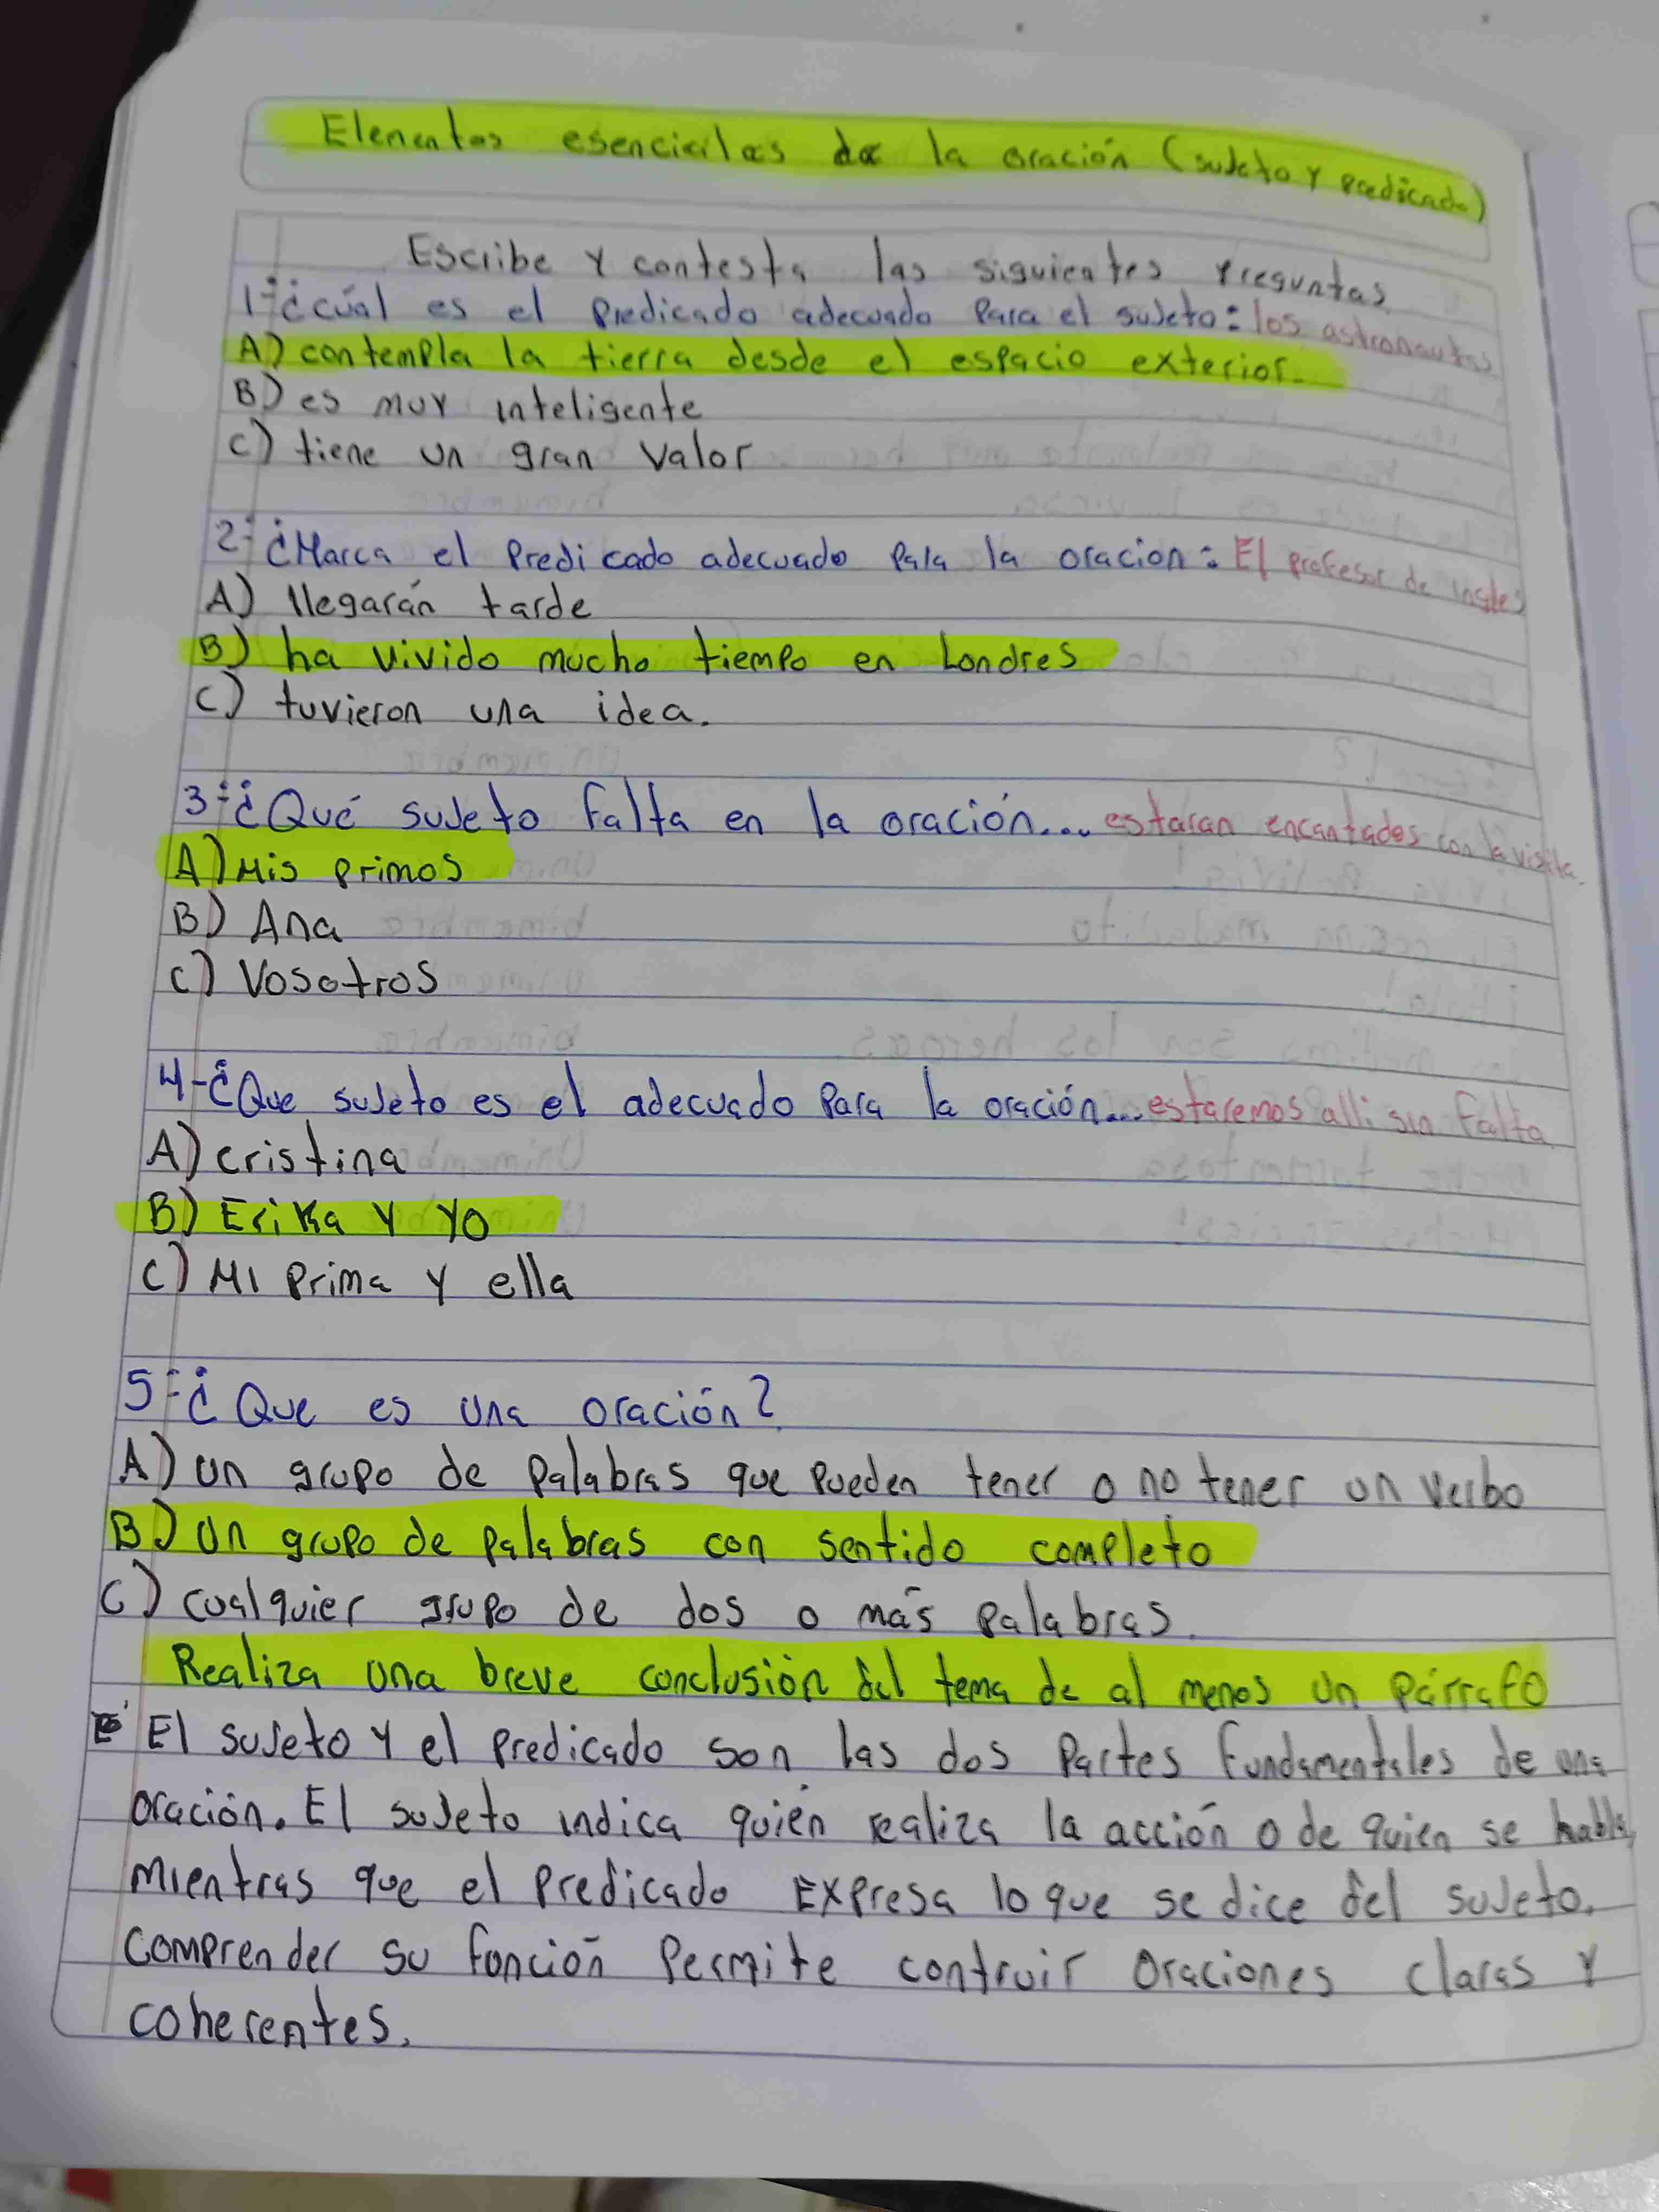 Elementos esenciales de la oración (sujeto y predicado)
Escribe y contesta las siguientes preguntas
1-¿cúal es el predicado adecuado para el sujeto: los astronautas
A) contempla la tierra desde el espacio exterior.
B) es muy inteligente
C) tiene un gran valor
2-¿Marca el predicado adecuado para la oracion: El profesor de ingles
A) llegarán tarde
B) ha vivido mucho tiempo en Londres
C) tuvieron una idea.
3-¿Qué sujeto falta en la oración... estaran encantados con la visita.
A) Mis primos
B) Ana
C) Vosotros
4-¿Que sujeto es el adecuado para la oración... estaremos alli sin falta
A) cristina
B) Erika y yo
C) Mi prima y ella
5-¿Que es una oración?
A) un grupo de palabras que pueden tener o no tener un verbo
B) un grupo de palabras con sentido completo
C) cualquier grupo de dos o más palabras.
Realiza una breve conclusión del tema de al menos un párrafo
El sujeto y el predicado son las dos partes fundamentales de una
oración. El sujeto indica quién realiza la acción o de quien se habla,
mientras que el predicado expresa lo que se dice del sujeto.
comprender su función permite contruir oraciones claras y
coherentes.